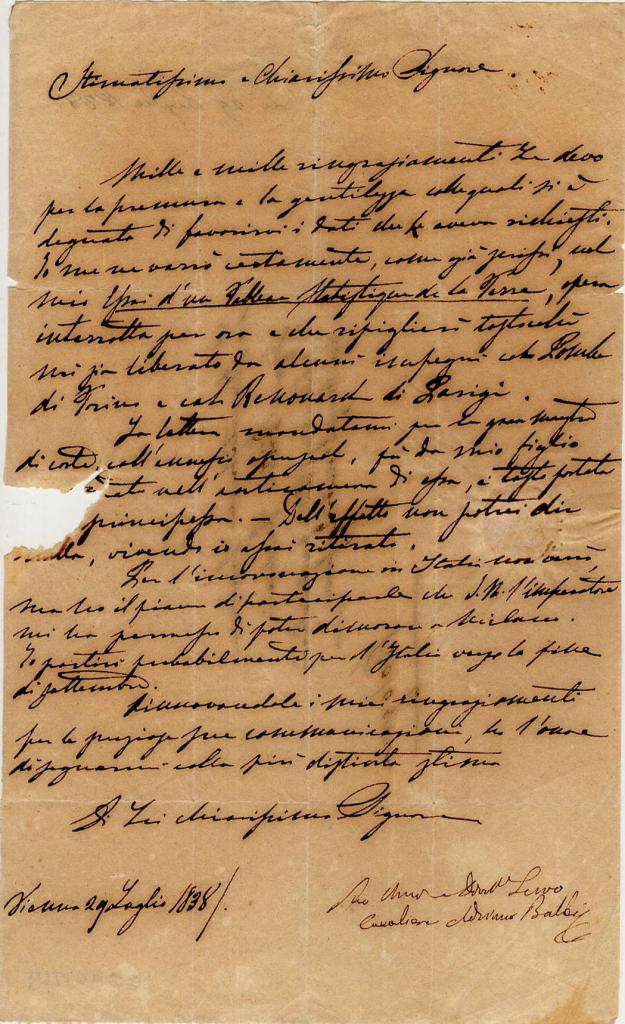 Stimatissimo e Chiarissimo Signore.
Mille e mille ringraziamenti Le devo
per la premura e la gentilezza colle quali si è
degnata di favorirmi i dati che aveva richiesti.
Io me ne varrò certamente, come già scrissi, nel
mio Essai d'un Tableau Statistique de la Terre, opera
interrotta per ora e che ripiglierò tostochè
mi sia liberato da alcuni impegni col Pomba
di Torino e col Renouard di Parigi.
La lettera mandatami per la gran maestra
di corte, coll'annesso, fu da mio figlio
nell'anticamera di essa, e tosto portata
principessa. — Dell'effetto non potrei dir
nulla, vivendo io assai ritirato.
Per l'incoronazione in Italia non verrò,
ma ho il piacere di parteciparle che S. M. l'imperatore
mi ha permesso di poter dimorare a Milano.
Io partirò probabilmente per l'Italia verso la fine
di settembre.
Rinnovandole i miei ringraziamenti
per le preziose sue communicazioni, ho l'onore
di segnarmi colla più distinta stima
Di Lei chiarissimo Signore
Vienna 29 Luglio 1838/.
Servo
Cavaliere Adriano Balbi